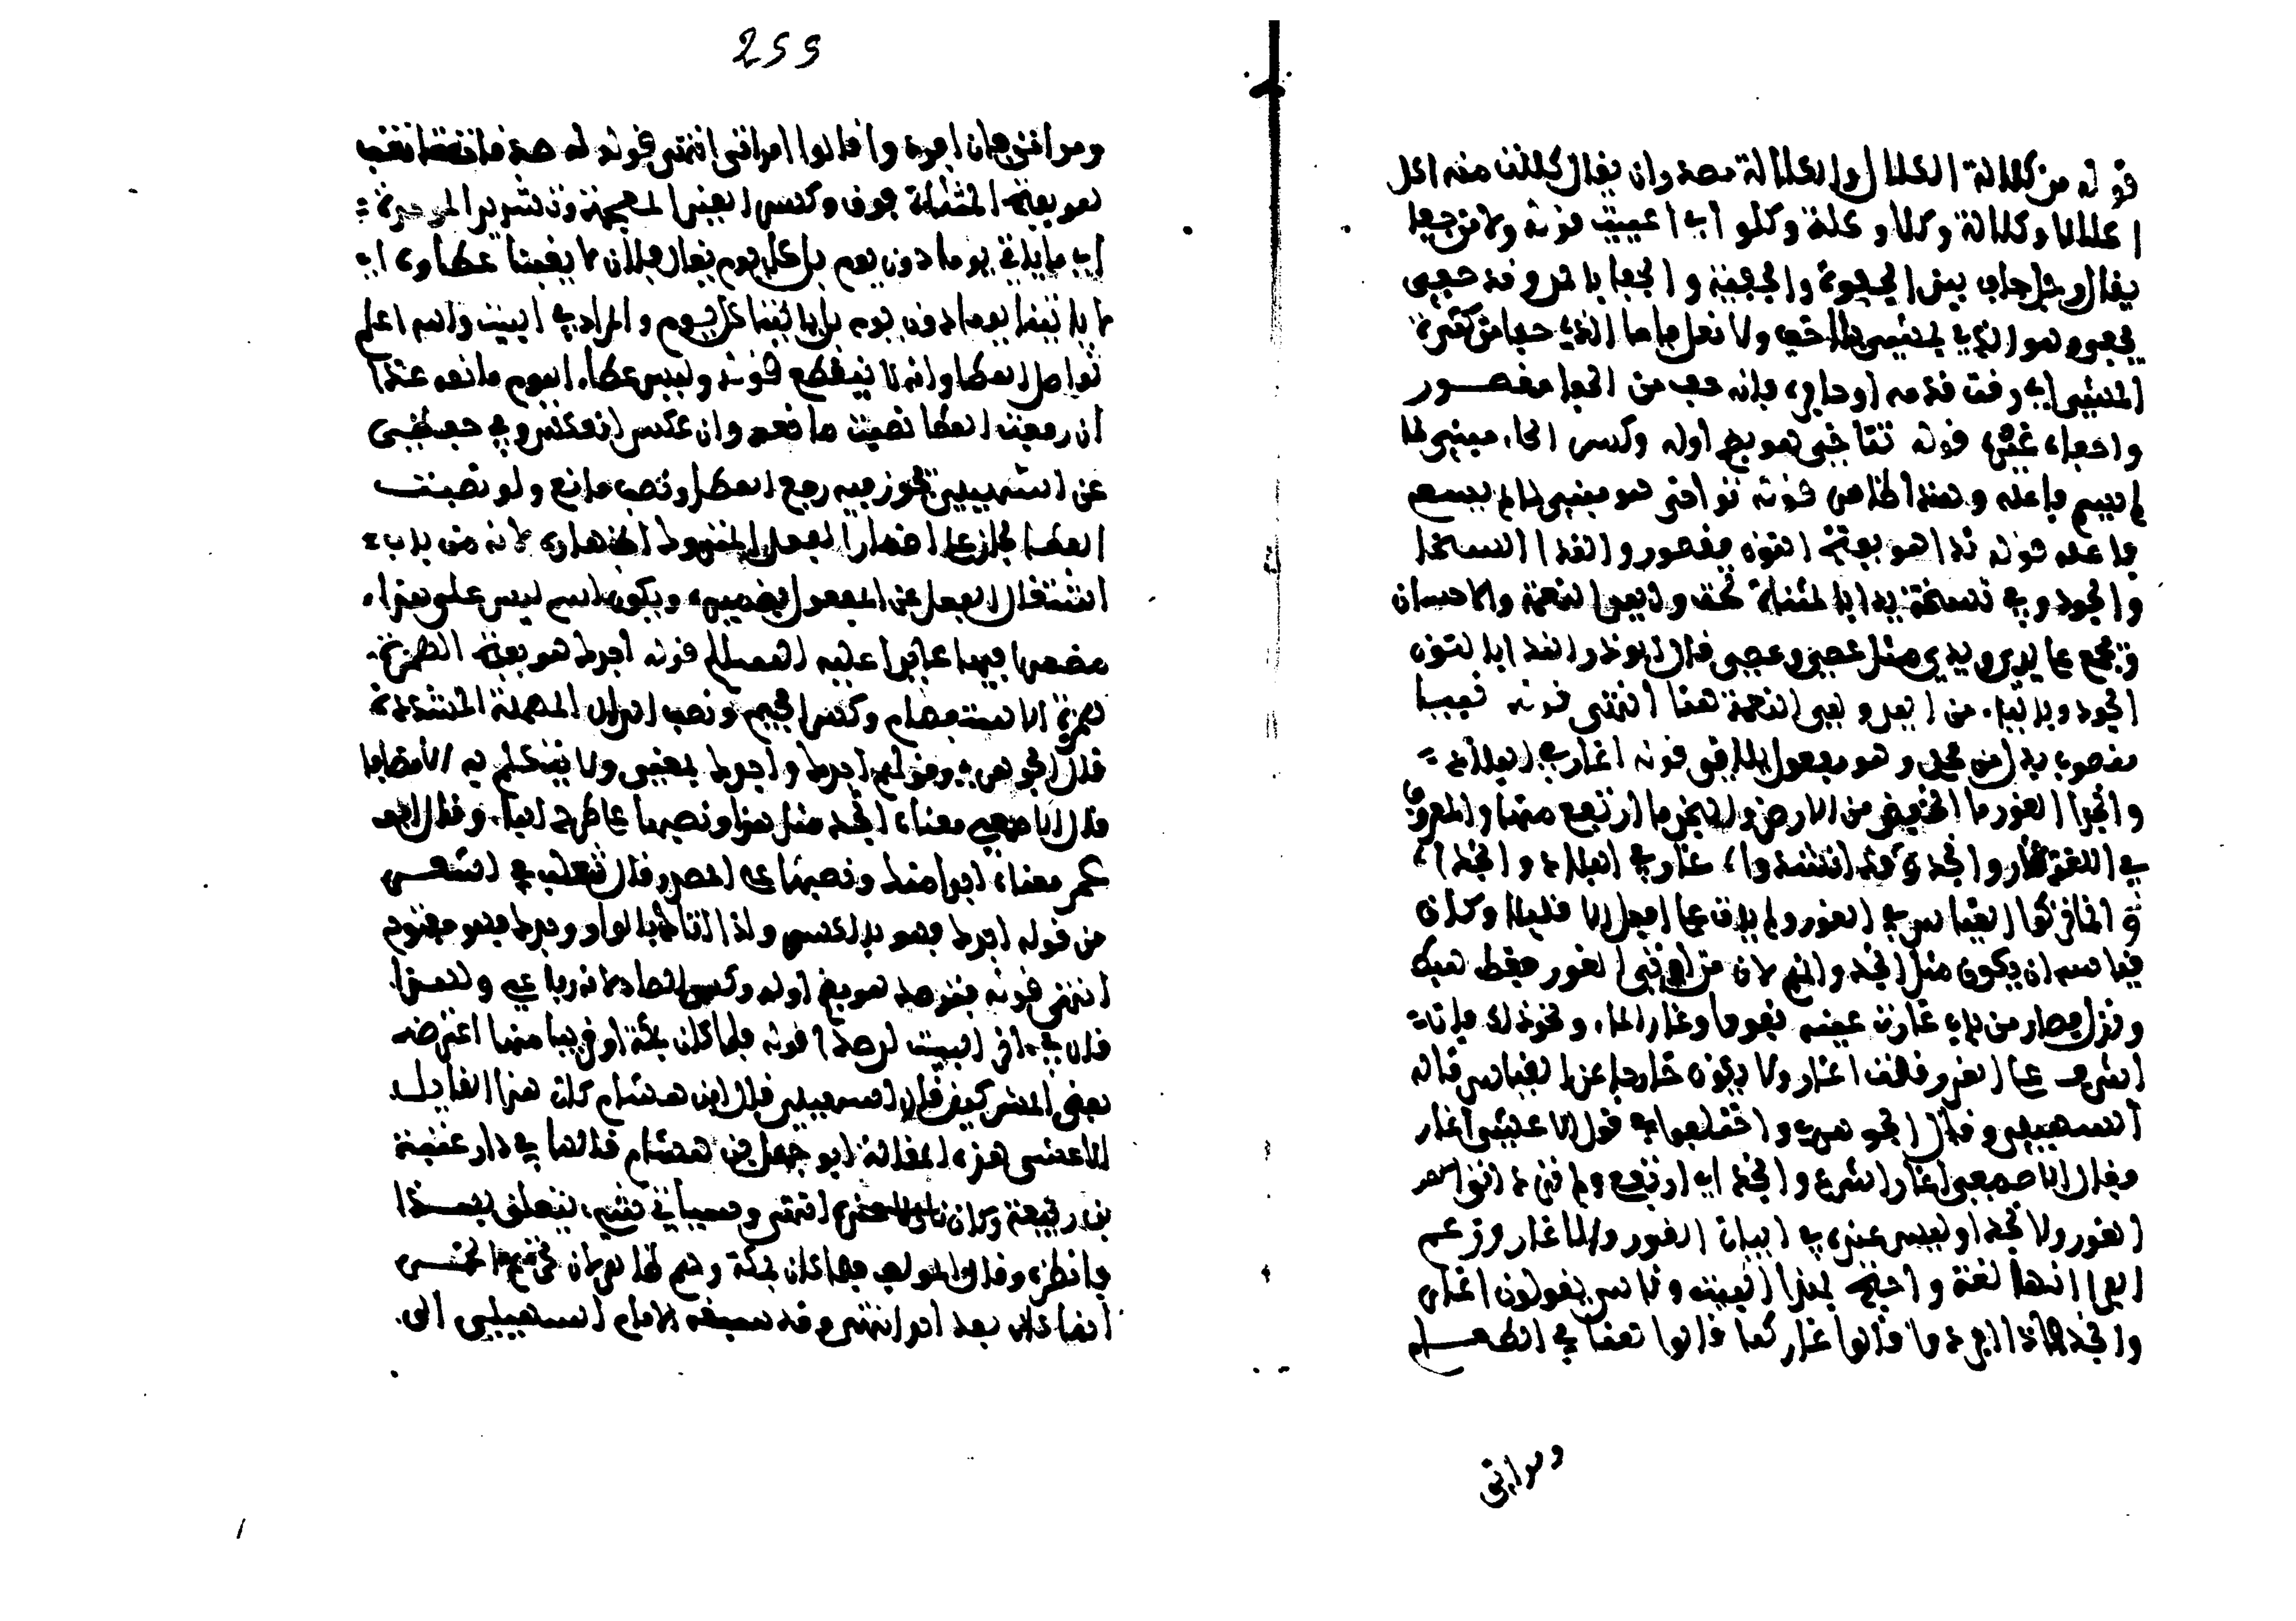 قوله من كلالة الكلال والكلالة مصدران يقال كللت منه اكل
كلالا وكلالة وكلا وكلة وكلو اي اعييت قوله ولا من حفا
يقال رجل حاف بين الحفوة والحفية والحفا بالمد وقد حفي
يحفى وهو الذي يمشي بلا خف ولا نعل فاما الذي حفا من كثرة
المشي اي رقت قدمه او حافره فانه حف من الحفا مقصور
واحفاه غيره قوله تناخي هو بضم اوله وكسر الخاء مبني لما
لم يسم فاعله وهذا ظاهر قوله تراحي هو مبني لما لم يسم
فاعله قوله ندا هو بفتح النون مقصور والندا السخا
والجود وفي نسخة يدا بالمثناة تحت واليد النعمة والاحسان
وتجمع على يدي ويدي مثل عصي وعصى قال ابو ذر الندا بالنون
الجود وبالياء من اليد وهي النعمة هنا انتهى قوله نبيا
منصوب بدل من محل وهو مفعول تلاقي قوله اغار في البلاد
وانجدا الغور ما انخفض من الارض والنجد ما ارتفع منها والمعروف
في اللغة غار وانجد وقد انشدوا غار في البلاد وانجدا
المنافرتها القياس في الغور ولم يات على افعل الا قليلا وكان
قياسه ان يكون مثل انجد واتهم لان من اتى الغور فقط هبط
ونزل فصار من باب غارت عينه غوما وغار الماء ونحو ذلك فان
اشرف على الغور قلت اغار ولا يكون خارجا عن القياس قاله
السهيلي وقال الجوهري واختلفوا في قول الاعشى اغار
وقال الاصمعي اغار اسرع وانجد اي ارتفع ولم يرد اتى
الغور ولا نجدا وليس عنده في اتيان الغور الا غار وزعم
الفرا انها لغة واحتج بهذا البيت وناس يقولون اغار
وانجد فاذا افردوا قالوا غار كما قالوا هناني الطعام
ومراني
255
ومراني فان افردوا قالوا امراني انتهى قوله له صدقات ما تغب
هو بضم المثناة فوق وكسر الغين المعجمة وتشديد الموحدة
اي ما ياتي يوما دون يوم بل كل يوم يقال فلان ما يغبنا عطاوه اي
لا ياتينا يوما دون يوم بل ياتينا كل يوم والمراد في البيت والله اعلم
تواصل العطا وانه لا ينقطع قوله وليس عطاء اليوم مانعه غدا
ان رفعت العطا نصبت مانعه وان عكس انعكس وفي حفظي
عن السهيلي تجوز فيه رفع العطا ونصب مانع ولو نصبت
العطا لجاز على اضمار الفعل المتروك اظهاره لانه من باب
اشتغال الفعل عن المفعول بضميره ويكون اسم ليس على هذا
مضمرا فيها عايدا عليه السلام قوله اجدك هو بفتح الهمزة
همزة الاستفهام وكسر الجيم ونصب الدال المهملة المشددة
قال الجوهري وقولهم اجدك واجدك بمعنى ولا يتكلم به الا مضافا
قال الاصمعي معناه ابجد منك هذا ونصبهما على طرح الباء وقال ابو
عمرو معناه ابجد منك ونصبها على المصدر قال ثعلب في الشعر
من قوله اجدك فهو بالكسر واذا اتاك بالواو وجدك فهو مفتوح
انتهى قوله فترصد هو بضم اوله وكسر الصاد لانه رباعي ولهذا
قال في اخر البيت ارصدا قوله فلما كان بمكة او قريبا منها اعترضه
بعض المشركين قال السهيلي قال ابن هشام كان هذا القايل
للاعشى هذه المقالة ابو جهل بن هشام قالها في دار عتبة
بن ربيعة وكان نازلا عنده انتهى وسياتي شيء يتعلق بهذا
فانظره وقال المولف فلما كان بمكة وهم ظاهر لان تحريم الخمر
انما كان بعد احد انتهى وقد سبقه الامام السهيلي الى